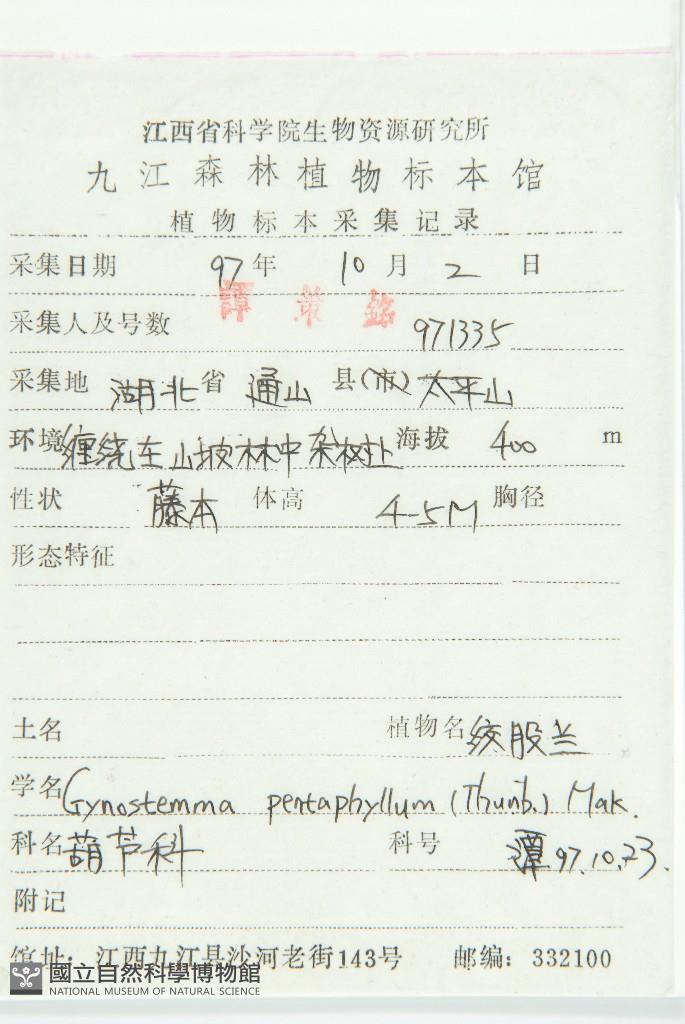 江西省科学院生物资源研究所
九江森林植物标本馆
植物标本采集记录
采集日期 97年 10月 2日
譚 策 銘
采集人及号数 971335
采集地 湖北省 通山县(市) 太平山
环境 缠绕在山坡林中杂树上 海拔 400 m
性状 藤本 体高 4-5M 胸径
形态特征
土名 植物名 绞股兰
学名 Gynostemma pentaphyllum (Thunb.) Mak.
科名 葫芦科 科号 潭 97.10.23.
附记
馆址：江西九江县沙河老街143号 邮编：332100
國立自然科學博物館
NATIONAL MUSEUM OF NATURAL SCIENCE